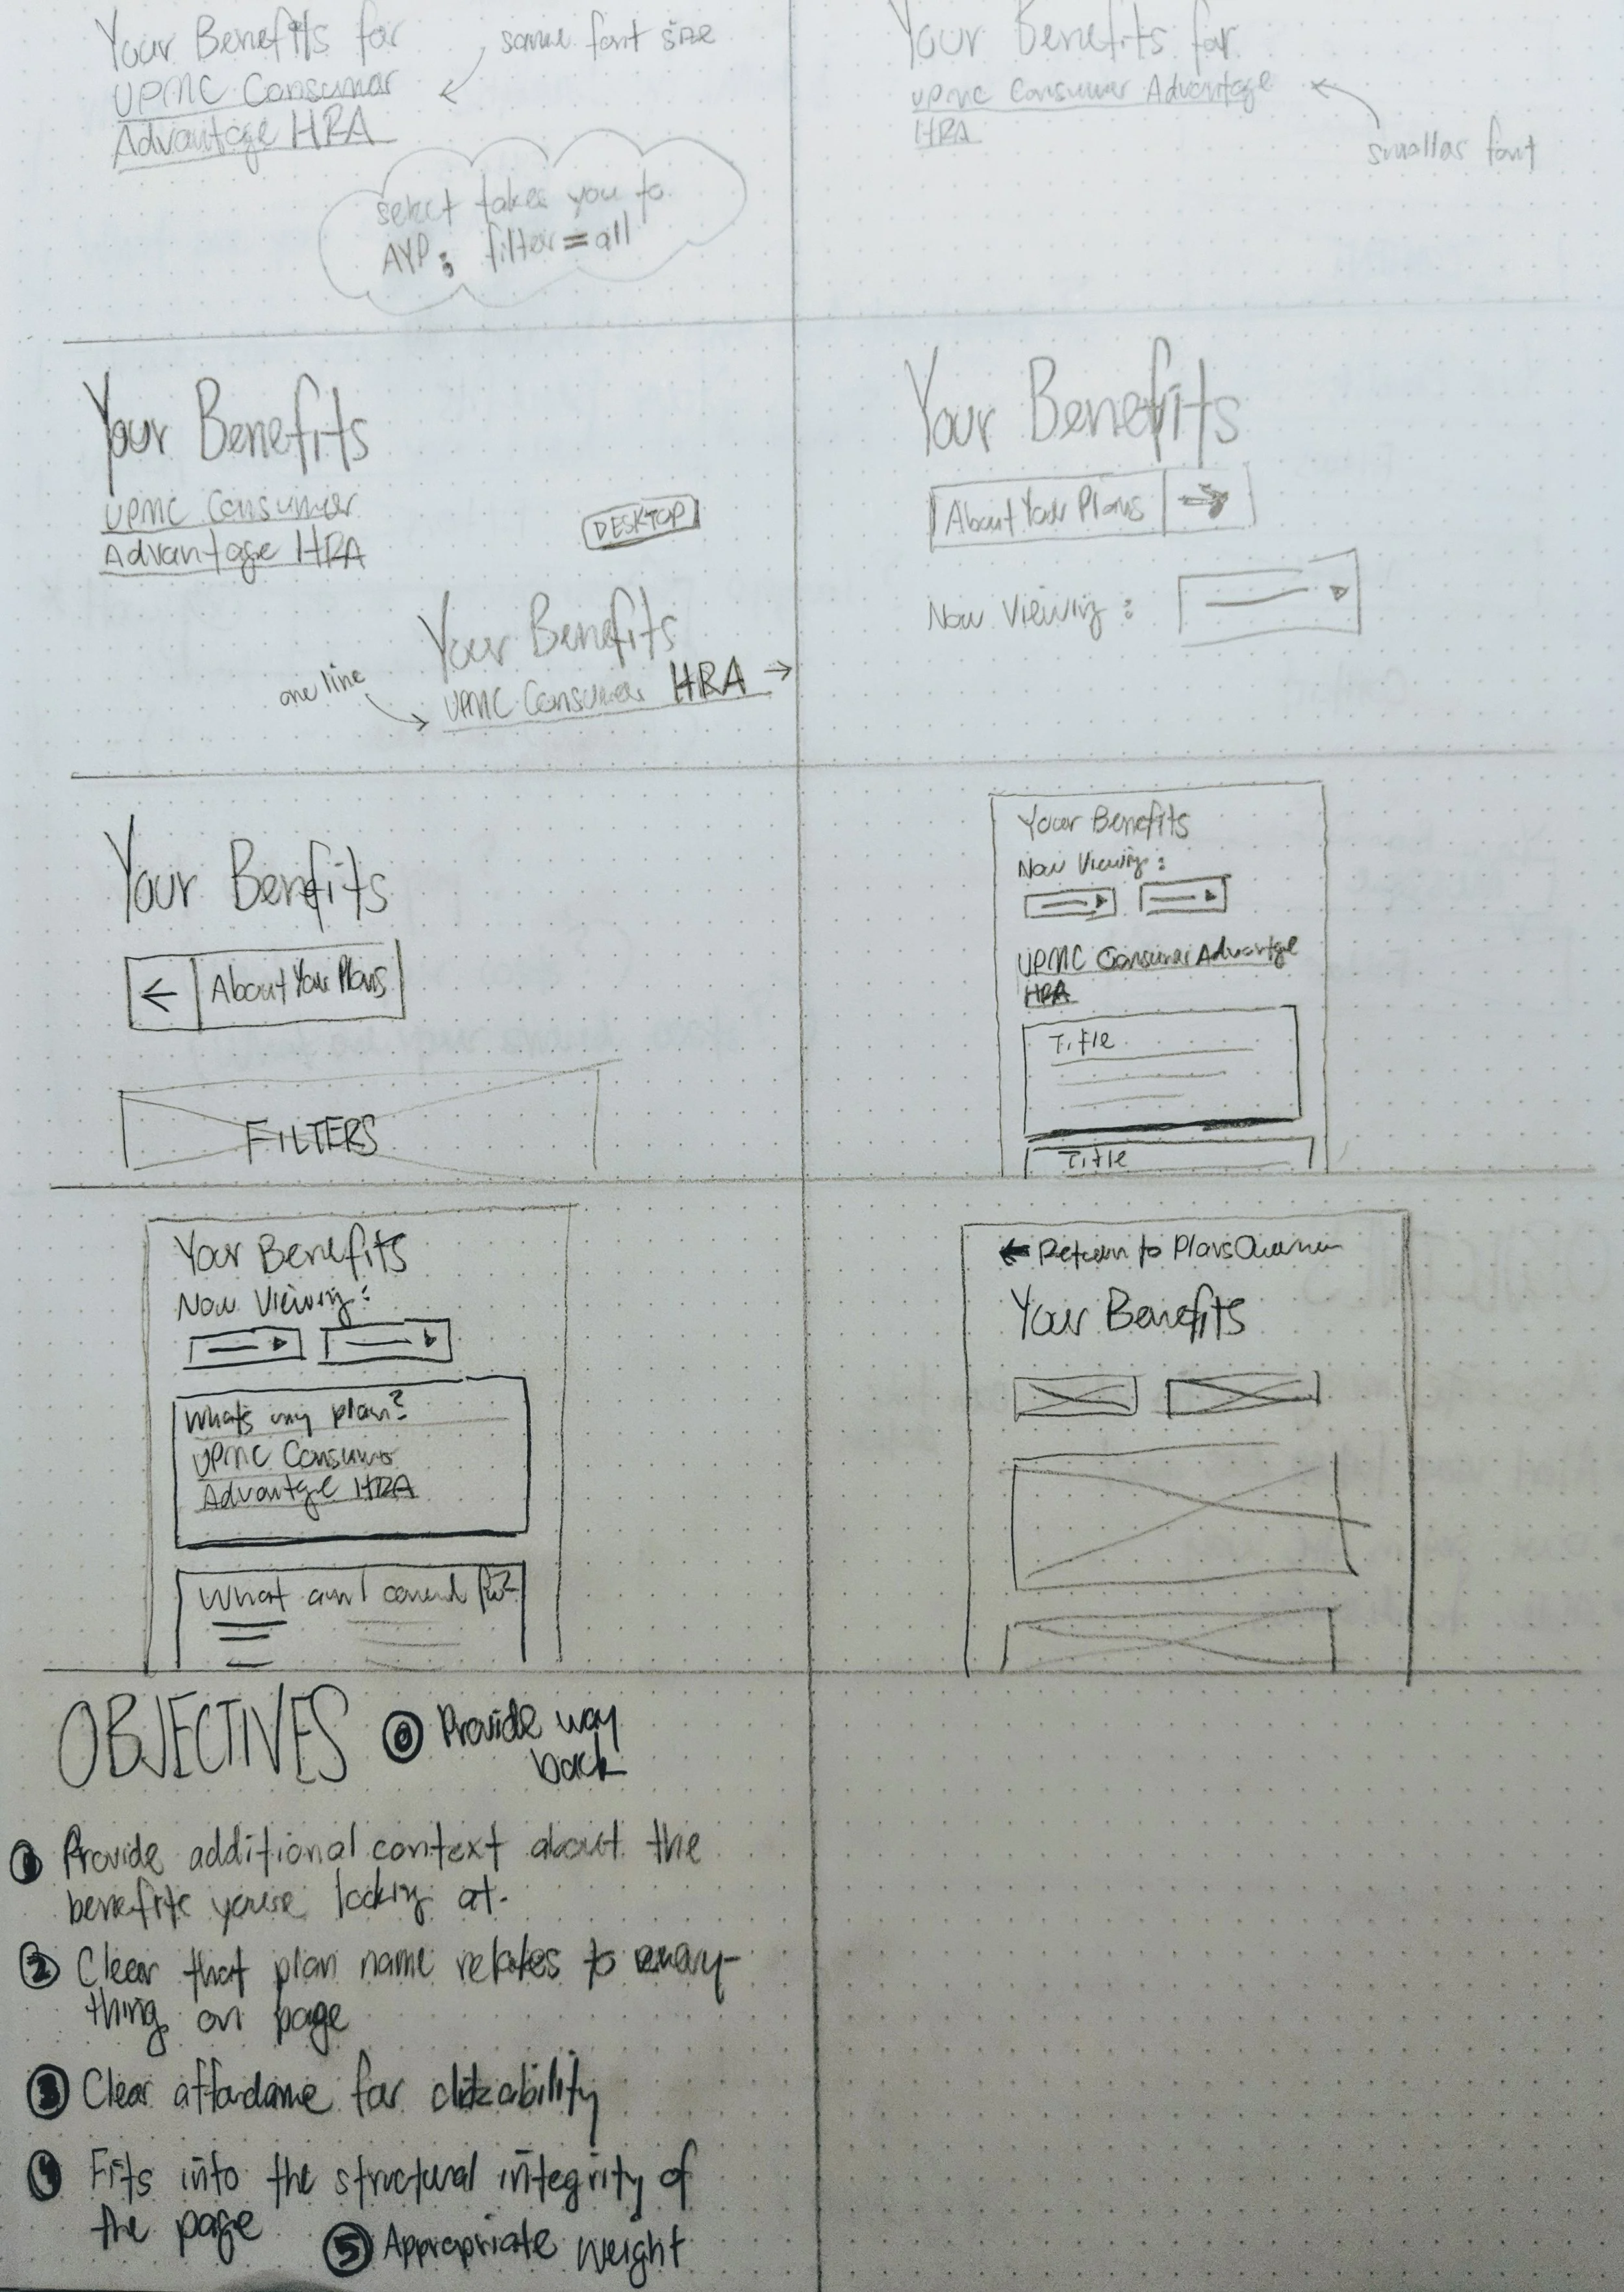 Your Benefits for
UPMC Consumer
Advantage HRA
same font size
select takes you to
AYP; filter=all
Your Benefits for
UPMC Consumer Advantage
HRA
smaller font
Your Benefits
UPMC Consumer
Advantage HRA
DESKTOP
Your Benefits
one line
UPMC Consumer HRA →
Your Benefits
About Your Plans →
Now Viewing:
Your Benefits
← About Your Plans
FILTERS
Your Benefits
Now Viewing:
UPMC Consumer Advantage
HRA
Title
Title
Your Benefits
Now Viewing:
Whats my plan?
UPMC Consumer
Advantge HRA
What am I covered for?
← Return to Plans
Your Benefits
OBJECTIVES
0 Provide way
back
1 Provide additional context about the
benefits you're looking at.
2 Clear that plan name relates to every-
thing on page
3 Clear affordance for clickability
4 Fits into the structural integrity of
the page
5 Appropriate weight